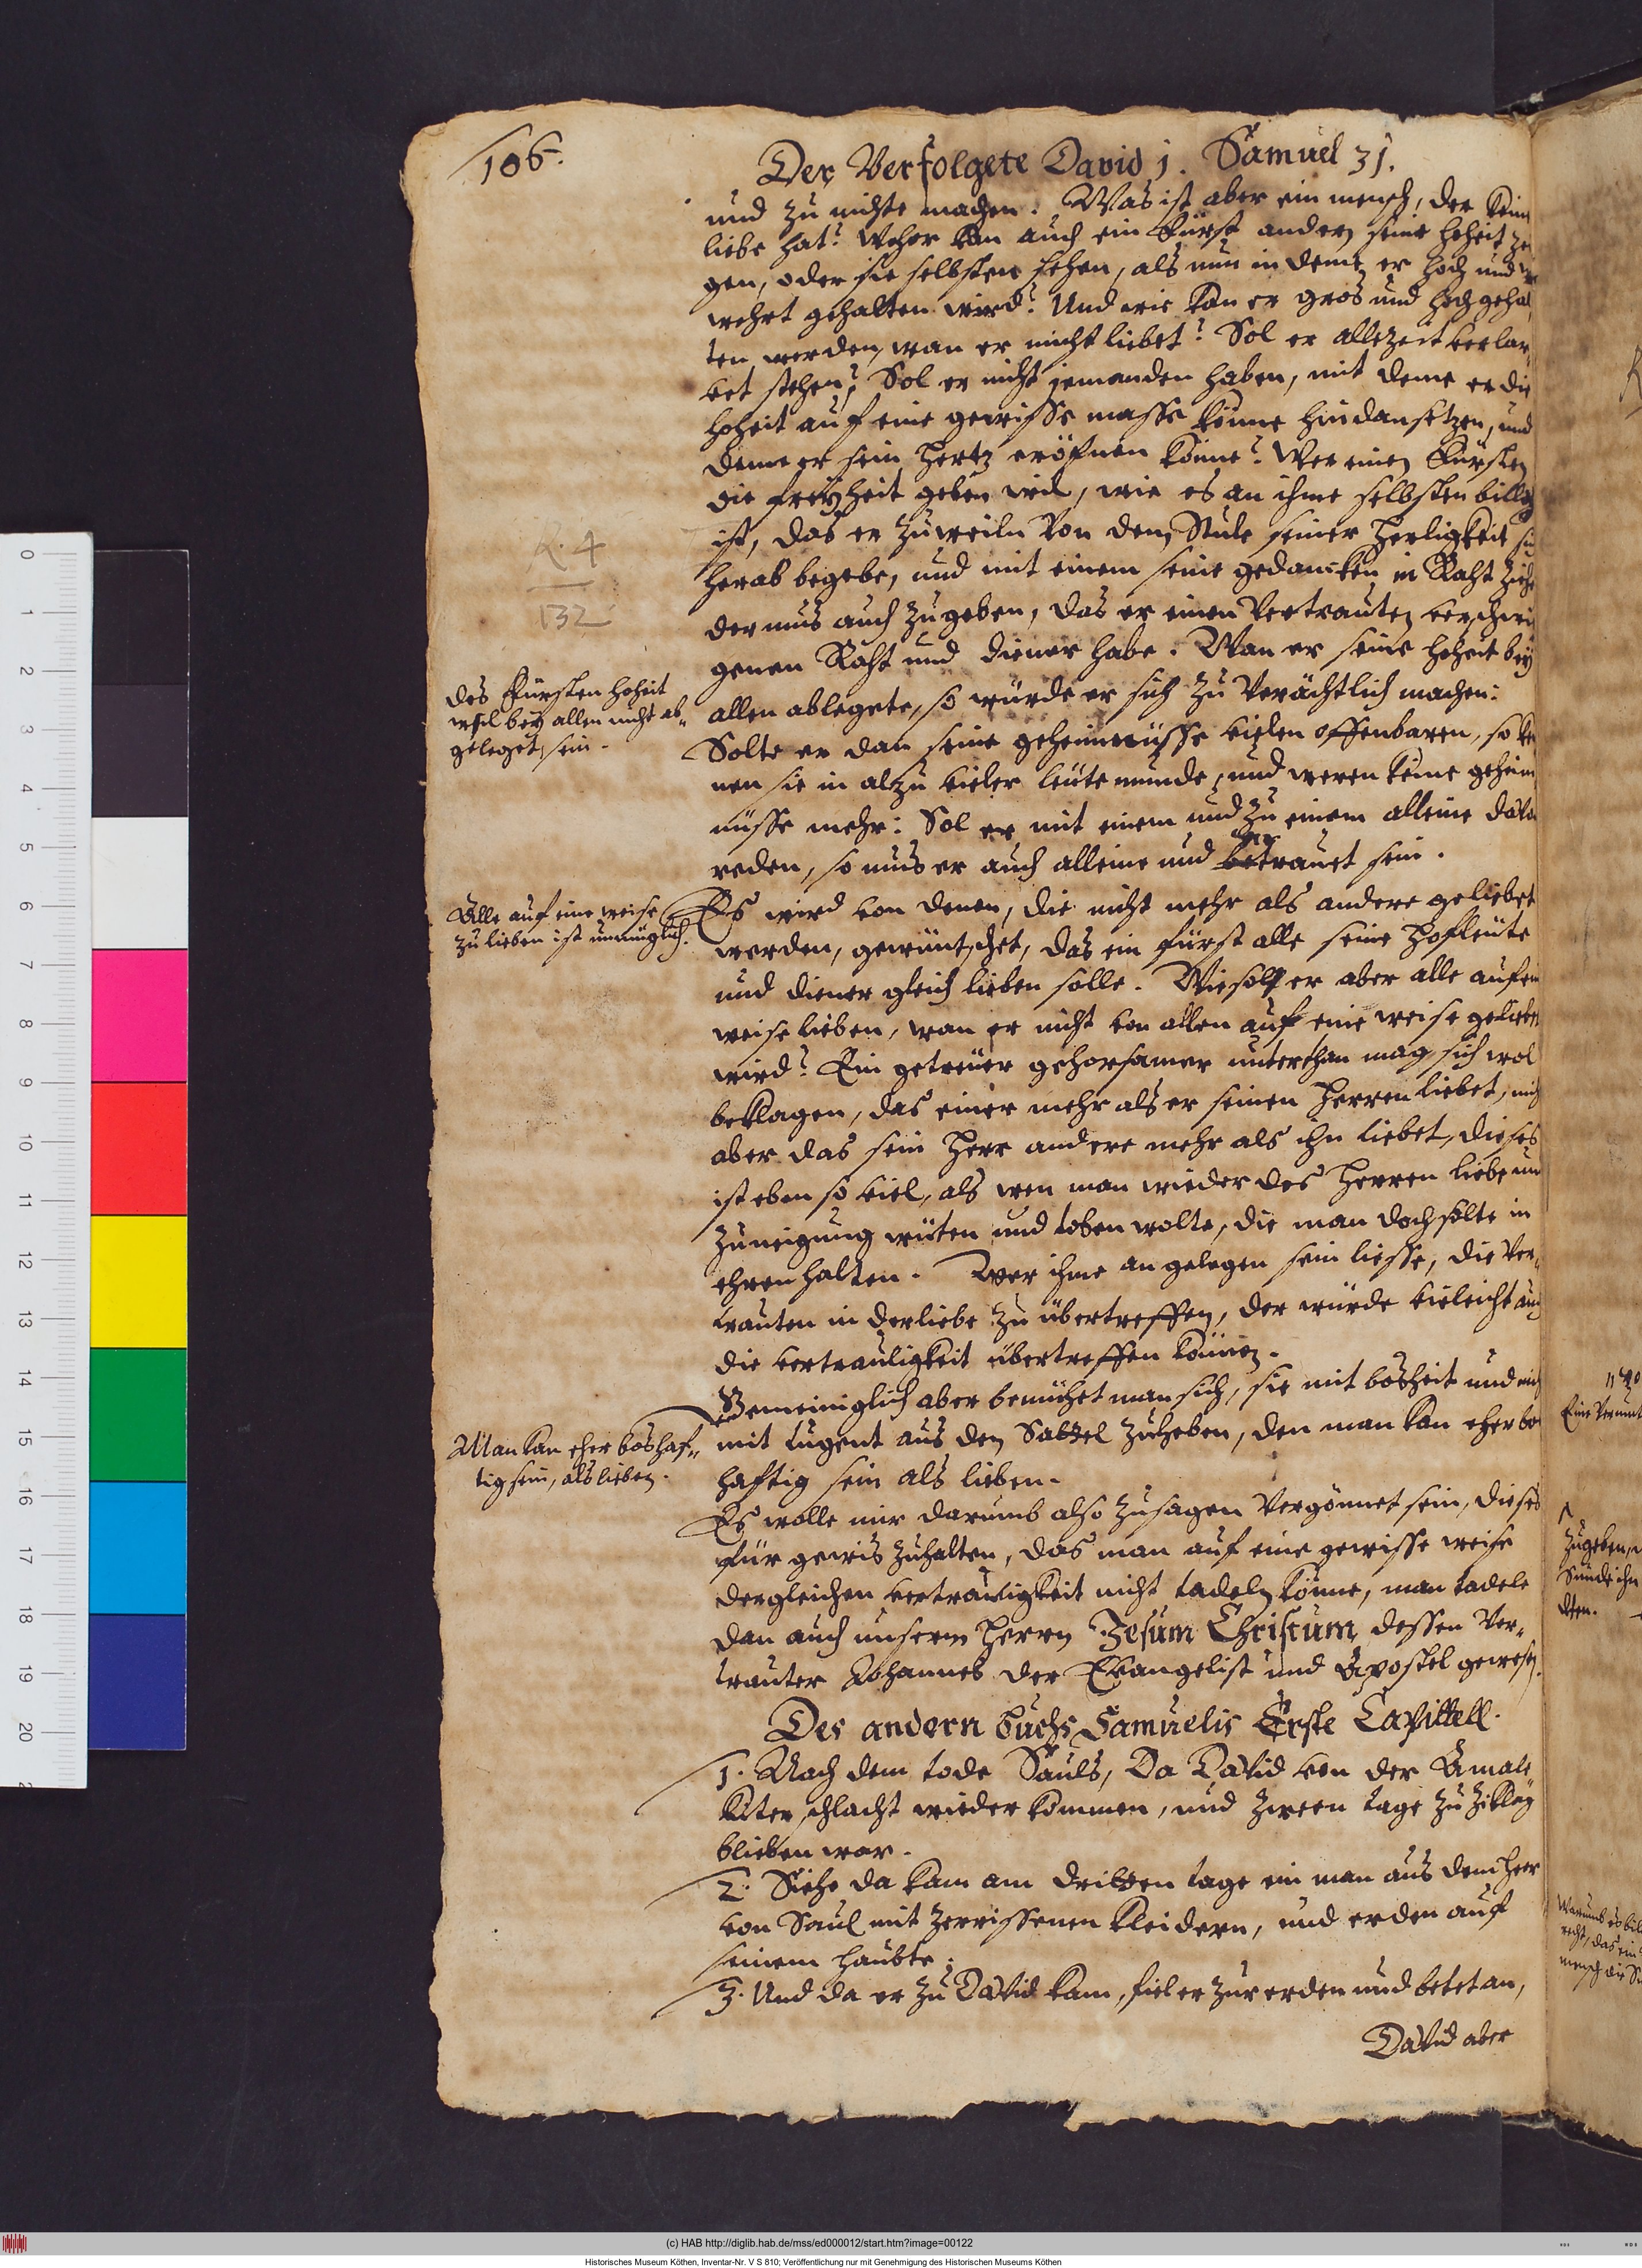 106.
Der Verfolgete David 1. Samuel 31.
und zu nichte machen. Was ist aber ein mensch, der kein
liebe hat? Woher kan auch ein Fürst andern seine hoheit zei
gen, oder sie selbsten sehen, als nun in deme er hoch und
wehrt gehalten wird? Und wie kan er gros und hoch gehal
ten werden, wan er nicht liebet? Sol er allezeit verlar,
vet stehen? Sol er nicht jemanden haben, mit deme er die
hoheit auf eine gewisse masse könne hindansetzen, und
deme er sein Hertz eröfnen könne? Wer einen Fürsten
die freÿheit geben wil, wie es an ihme selbsten billig
ist, das er zuweiln von dem Stule seiner Herligkeit sich
herab begebe, und mit einem seine gedancken in Raht ziehe
der mus auch zugeben, das er einen Vertrauten verschwi
genen Raht und diener habe. Wan er seine hoheit beÿ
allen ablegete, so würde er sich zu Verächtlich machen:
Solte er dan seine geheimnüsse vielen offenbaren, so ke
men sie in alzu vieler leüte munde, und weren keine geheim
nüsse mehr: Sol er mit einem und zu einem alleine davon
reden, so mus er auch alleine und betrauet sein.
K. 4
132
des Fürsten hoheit
wil beÿ allen nicht ab,
geleget sein.
Alle auf eine weise
zu lieben ist unmüglich.
Es wird von denen, die nicht mehr als andere geliebet
werden, gewüntschet, das ein fürst alle seine Hofleüte
und diener gleich lieben solle. Wie solt er aber alle auf ein
weise lieben, wan er nicht von allen auf eine weise geliebet
wird? Ein getreüer gehorsamer unterthan mag sich wol
beklagen, das einer mehr als er seinen Herren liebet, nich
aber das sein Herr andere mehr als ihn liebet, dieses
ist eben so viel, als wen man wieder des Herren liebe und
zuneigung wüten und toben wolte, die man doch solte in
ehren halten. Wer ihme angelegen sein liesse, die Ver,
trauten in der liebe zu übertreffen, der würde vieleicht auch
die vertrauligkeit übertreffen können.
Gemeiniglich aber bemühet man sich, sie mit bosheit und nich
mit tugent aus dem Sattel zuheben, den man kan eher bos
haftig sein als lieben.
Man kan eher boshaf,
tig sein, als lieben.
Es wolle mir darumb also zusagen Vergönnet sein, dieses
für gewis zuhalten, das man auf eine gewisse weise
dergleichen vertrauligkeit nicht tadeln könne, man tadele
dan auch unsern Herrn Jesum Christum, dessen Ver,
trauter Johannes der Evangelist und Apostel gewesen.
Des andern buchs Samuelis Erste Capittell.
1. Nach dem tode Sauls, Da David von der Amale
kiter schlacht wieder kommen, und zween tage zu Ziklag
blieben war.
2. Siehe da kam am dritten tage ein man aus dem heer
von Saul mit zerrissenen kleidern, und erden auf
seinem haubte.
3. Und da er zu David kam, fiel er zur erden und betet an,
David aber
zugeben,
Sünde ihn
Warumb es bil
recht, das ein
mensch die
0 1 2 3 4 5 6 7 8 9 10 11 12 13 14 15 16 17 18 19 20
(c) HAB http://diglib.hab.de/mss/ed000012/start.htm?image=00122
Historisches Museum Köthen, Inventar-Nr. V S 810; Veröffentlichung nur mit Genehmigung des Historischen Museums Köthen